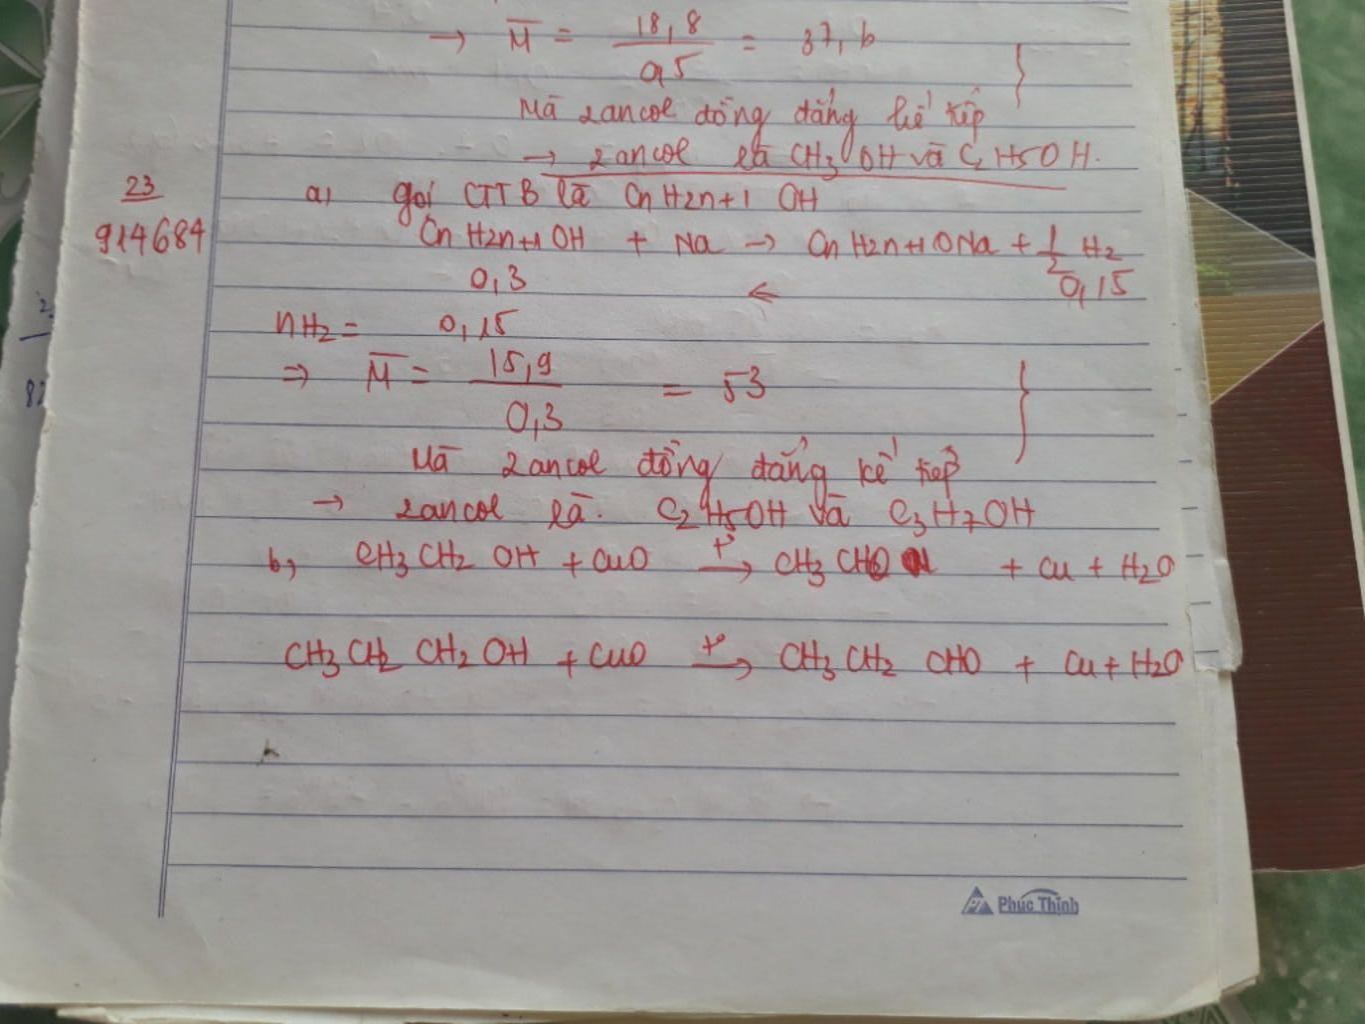 → M̄ = 18,8 / 0,5 = 37,6
Mà 2 ancol đồng đẳng kế tiếp
→ 2 ancol là CH3OH và C2H5OH.
23
914684
a) gọi CTTB là CnH2n+1 OH
CnH2n+1OH + Na → CnH2n+1ONa + 1/2 H2
0,3 ← 0,15
nH2 = 0,15
⇒ M̄ = 15,9 / 0,3 = 53
Mà 2 ancol đồng đẳng kế tiếp
→ 2 ancol là. C2H5OH và C3H7OH
b, CH3CH2OH + CuO t° → CH3CHO + Cu + H2O
CH3CH2CH2OH + CuO t° → CH3CH2CHO + Cu + H2O
Phúc Thịnh